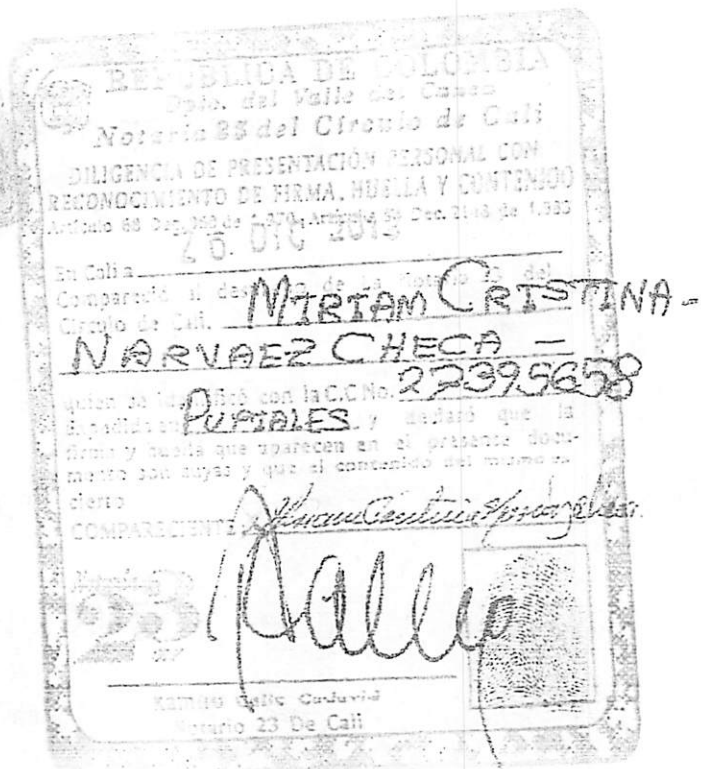 REPUBLICA DE COLOMBIA
Dpto. del Valle del Cauca
Notaria 23 del Circulo de Cali
DILIGENCIA DE PRESENTACIÓN PERSONAL CON
RECONOCIMIENTO DE FIRMA, HUELLA Y CONTENIDO
Artículo 68 Dec. 960 de 1.970 Artículo Dec. 2148 de 1.983
DIC
En Cali a
Compareció al despacho de la Notaria 23 del
Circulo de Cali. MIRIAM CRISTINA-
NARVAEZ CHECA -
quien se identificó con la C.C No. 27395658
Expedida en PUPIALES y declaró que la
firma y huella que aparecen en el presente docu-
mento son suyas y que el contenido del mismo es
cierto
COMPARECIENTE
Notaría
23
Cali
Notario 23 De Cali